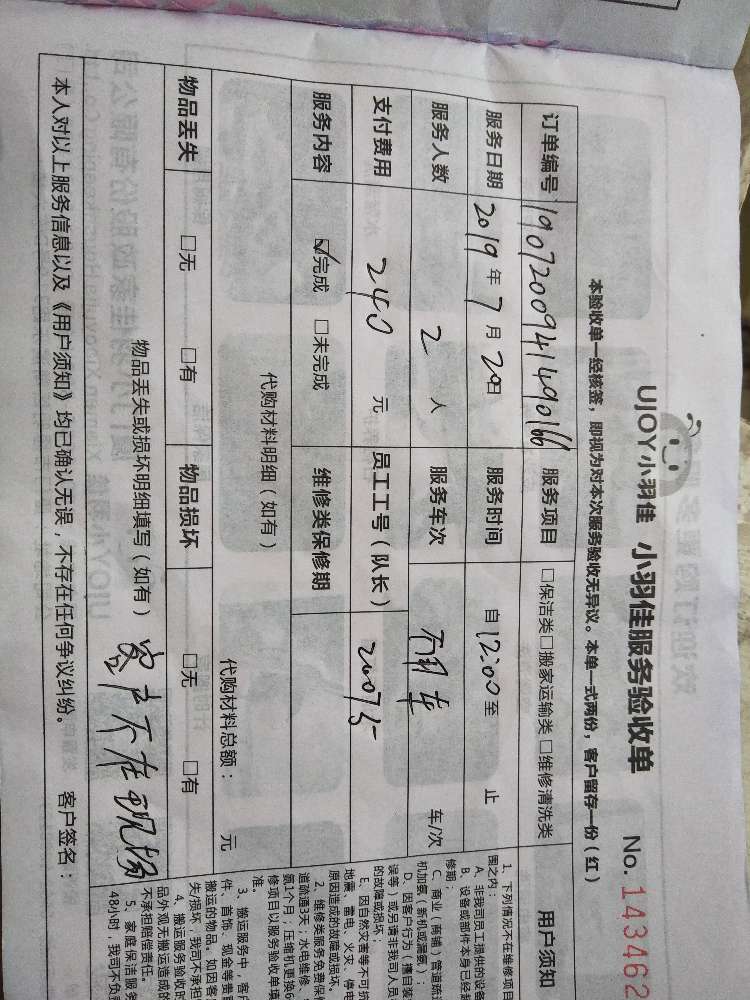 UJOY小羽佳 小羽佳服务验收单 No. 143462
本验收单一经核签，即视为对本次服务验收无异议。本单一式两份，客户留存一份（红）
订单编号 190720094149016 服务项目 □保洁类□搬家运输类□维修清洗类
服务日期 2019年7月20日 服务时间 自12:00至 止
服务人数 2 人 服务车次 车/次
支付费用 240 元 员工工号（队长） 20075
服务内容 ☑完成 □未完成 维修类保修期
代购材料明细（如有）
代购材料总额： 元
物品丢失 □无 □有 物品损坏 □无 □有
物品丢失或损坏明细填写（如有） 客户不在现场
本人对以上服务信息以及《用户须知》均已确认无误，不存在任何争议纠纷。 客户签名：
用户须知
1、下列情况不在维修项目
围之内：
A、非我司员工提供的设备
B、设备或部件本身已经超
修期；
C、商业（商铺）管道疏通
机加氨（新机或漏氨）；
D、因客户行为（擅自装
误等）或另请非我司人员
的故障或损坏
E、因自然灾害等不可抗
地震、雷电、火灾、停电
原因造成的故障或损坏。
2、维修类服务免费保
道疏通3天；水电维修
氨1个月；压缩机更换6
修项目以服务验收单填
准。
3、搬运服务中，客户
件、首饰、现金等贵重
搬运的物品，如因客
失/损坏，我司不承担
4、搬运服务验收时
品外观无搬运造成的
不承担赔偿责任。
5、家庭保洁服务
48小时，我司不负责